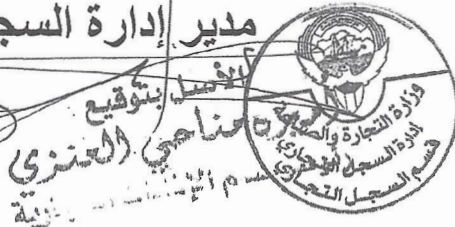 مدير إدارة السج
الأصل بتوقيع
مناحي العنزي
وزارة التجارة والصناعة
إدارة السجل التجاري
قسم السجل التجاري